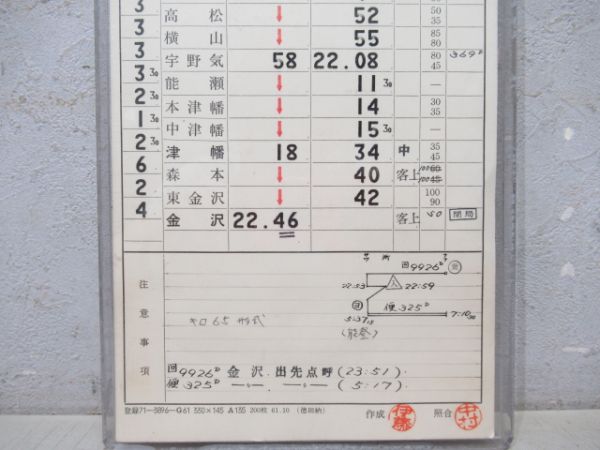 3 高松 ↓ 52 50 35
3 横山 ↓ 55 85 80
3 宇野気 58 22.08 80 45 369D
3 30 能瀬 ↓ 11 30 —
2 30 本津幡 ↓ 14 30 35
1 30 中津幡 ↓ 15 30 —
2 30 津幡 18 34 中 35 45
6 森本 ↓ 40 客上
2 東金沢 ↓ 42 100 90
4 金沢 22.46 客上 50 閉局
注意事項
回9926D
22:53 22:59
便325D
5:37 7:10
(能登)
キロ65形式
回9926D 金沢 出先点呼 (23:51)
便325D 〃 〃 (5:17)
登録71—5896—G61 550×145 A135 200枚 61.10 (徳田納) 作成 伊藤 照合 中村